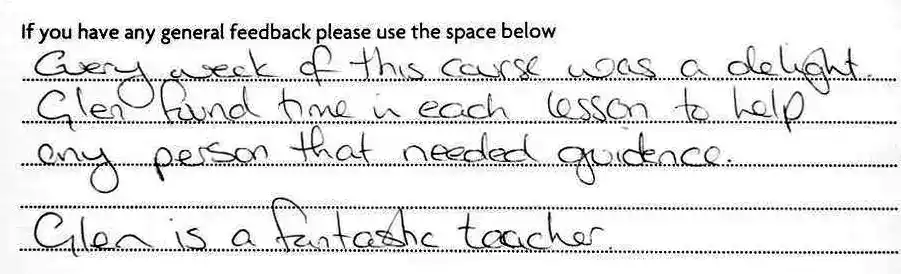 If you have any general feedback please use the space below
Every week of this course was a delight.
Glen found time in each lesson to help
any person that needed guidence.
Glen is a fantastic teacher.